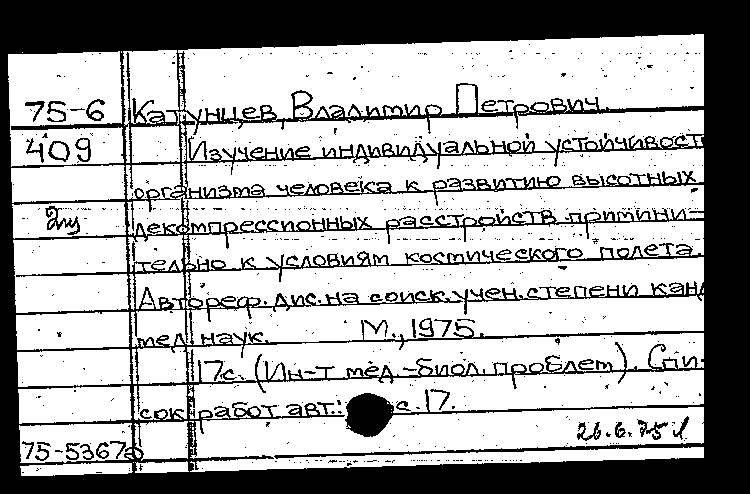 75-6 Катунцев, Владимир Петрович.
409 Изучение индивидуальной устойчивост
организма человека к развитию высотных
декомпрессионных расстройств примини-
тельно к условиям космического полета.
Автореф. дис. на соиск. учен. степени канд
мед. наук. М., 1975.
17с. (Ин-т мед.-биол. проблем). Спи-
сок работ авт.: с. 17.
26.6.75
75-5367а